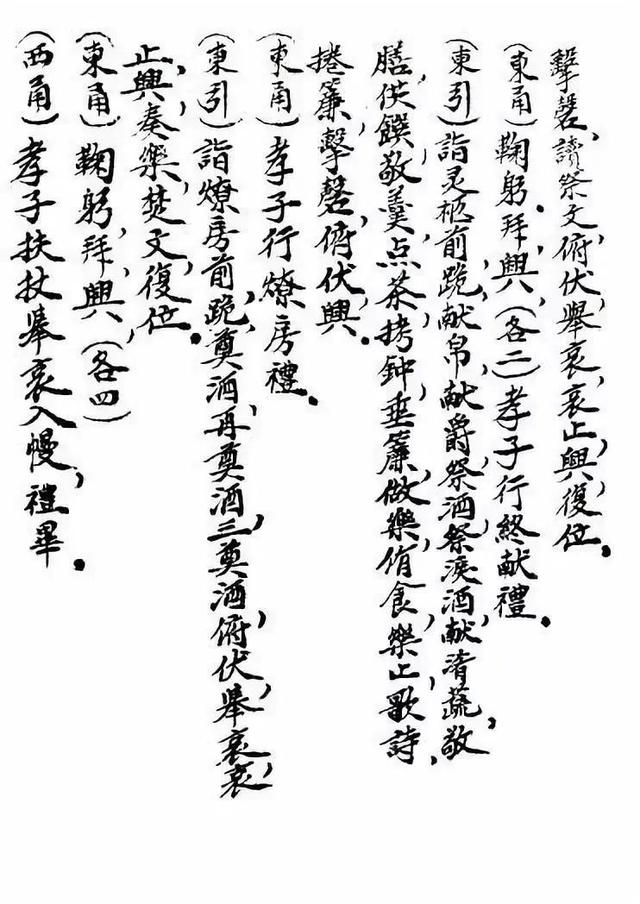 擊磬,讀祭文,俯伏,舉哀,哀止,興,復位。
(東甬)鞠躬,拜,興,(各二)孝子行終献禮。
(東引)詣灵柩前跪,献帛,献爵,祭酒,祭淚酒,献清蔬,敬
膳,供饌,敬羹,点茶,拷鈡,垂簾,做樂,侑食,樂止,歌詩,
捲簾,擊磬,俯伏,興。
(東甬)孝子行燎房禮。
(東引)詣燎房前跪,奠酒,再奠酒,三奠酒,俯伏,舉哀,哀
止,興,奏樂,焚文,復位。
(東甬)鞠躬,拜,興(各四)
(西甬)孝子扶杖舉哀入幔,禮畢。